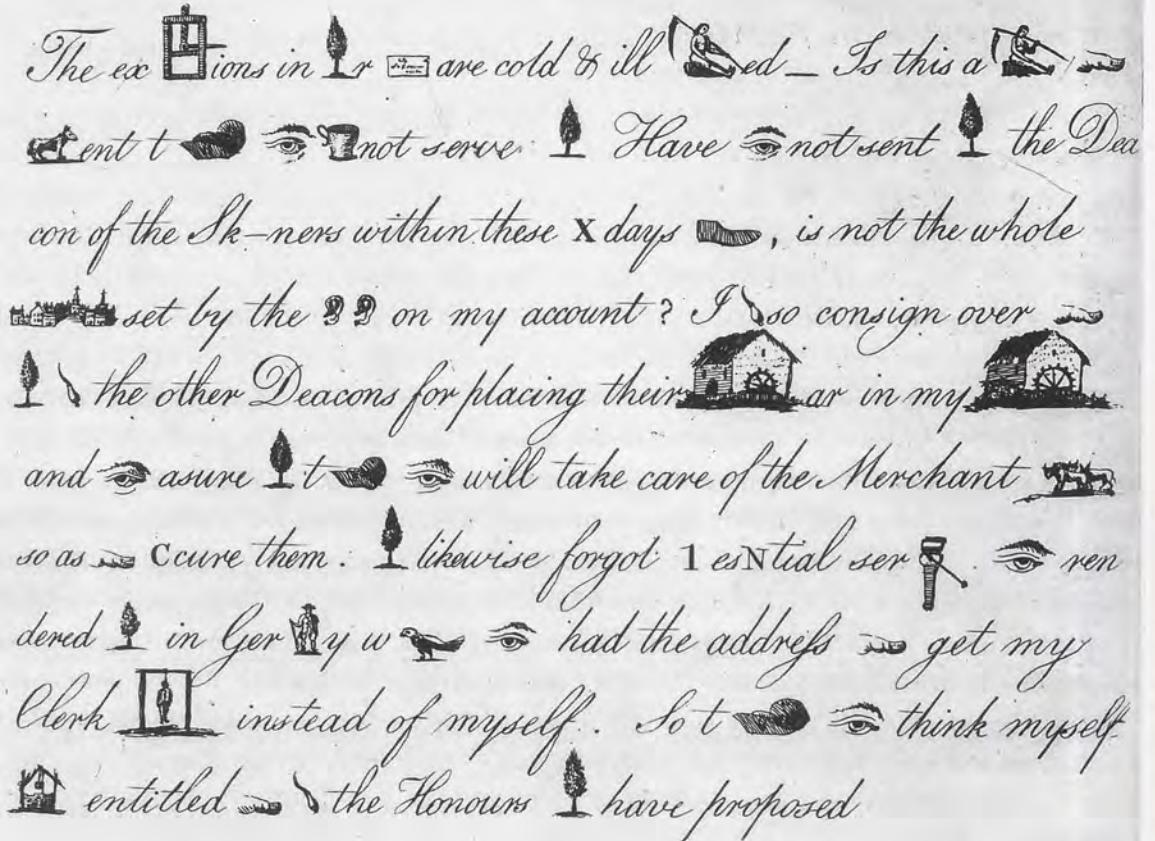 The ex ions in r are cold & ill ed _ Is this a
ent t not serve. Have not sent the Dea
con of the Sk-ners within these X days , is not the whole
set by the on my account? I so consign over
the other Deacons for placing their ar in my
and asure t will take care of the Merchant
so as Ccure them. likewise forgot 1 esNtial ser . ren
dered in Ger y w had the addreſs get my
Clerk instead of myself. So t think myself
entitled the Honours have proposed